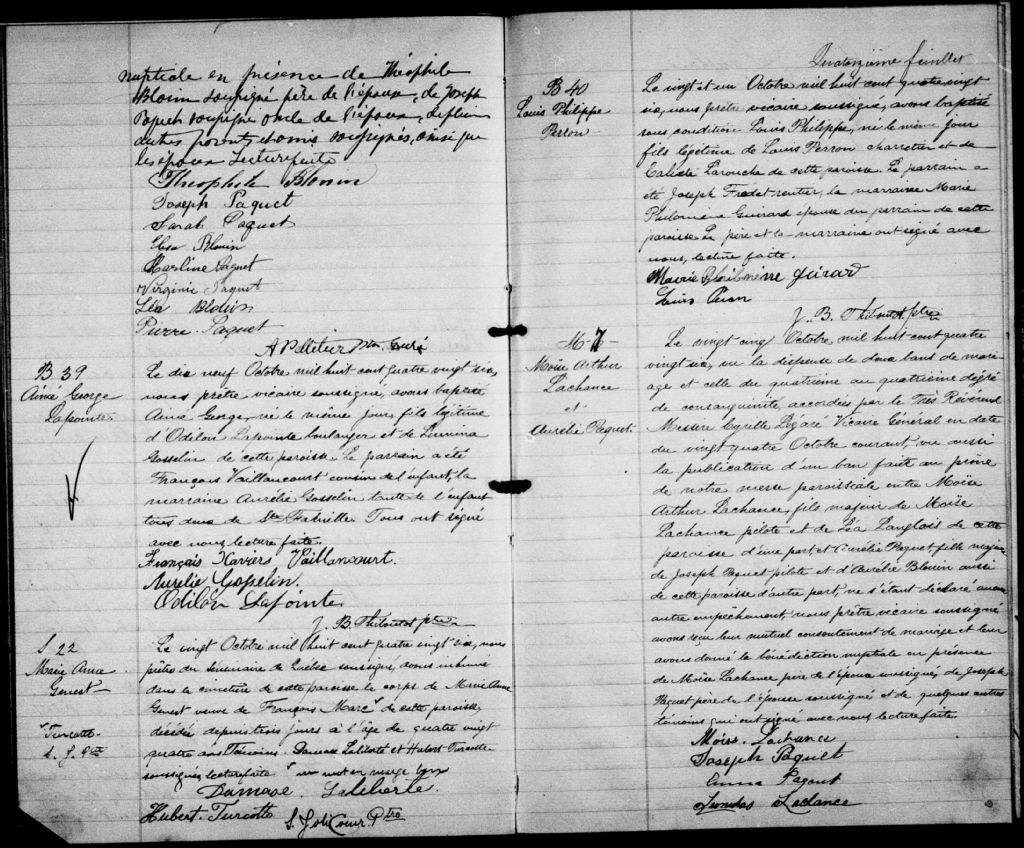 nuptiale en présence de Théophile
Blouin soussigné père de l'époux, de Joseph
Paquet soussigné oncle de l'époux, de plusieurs
autres parents et amis soussignés, ainsi que
les époux Lecture faite
Théophile Blouin
Joseph Paquet
Sarah Paquet
Elisa Blouin
Paquet
Virginie Paquet
Léa Blouin
Pierre Paquet
A Pelletier Ptre Curé
B 39
Aimé George
Lapointe
Le dix neuf Octobre mil huit cent quatre vingt six,
nous prêtre vicaire soussigné, avons baptisé
Aimé George, né le même jour, fils légitime
d'Odilon Lapointe boulanger et de Lumina
Gosselin de cette paroisse. Le parrain a été
François Vaillancourt cousin de l'enfant, la
marraine Aurélie Gosselin tante de l'enfant
tous deux de Ste Famille. Tous ont signé
avec nous lecture faite.
François Xaviers Vaillancourt.
Aurelie Gosselin.
Odilon Lafointe
J. B. Thiboutot ptre
S 22
Marie Anne
Genest
Turcotte
S. J. Ptre
Le vingt Octobre mil huit cent quatre vingt six, nous
prêtre du Séminaire de Québec soussigné, avons inhumé
dans le cimetière de cette paroisse le corps de Marie Anne
Genest veuve de François Marc de cette paroisse,
décédée depuis trois jours à l'âge de quatre vingt
quatre ans Témoins. Damase Laliberté et Hubert Turcotte
soussignés lecture faite un mot en marge bon
Damase. Laliberte.
Hubert. Turcotte
S. Joli Coeur Ptre
Quatorzième feuillet
B 40
Louis Philippe
Perron
Le vingt et un Octobre mil huit cent quatre vingt
six, nous prêtre vicaire soussigné, avons baptisé
sous condition Louis Philippe, né le même jour
fils légitime de Louis Perron charretier et de
Larouche de cette paroisse. Le parrain a
été Joseph Fradet rentier, la marraine Marie
Philomène Guérard épouse du parrain de cette
paroisse Le père et la marraine ont signé avec
nous, lecture faite.
Marie Philomène Gérard
Louis
J. B. Thiboutot ptre
M 7
Moïse Arthur
Lachance
et
Aurélie Paquet.
Le vingt cinq Octobre mil huit cent quatre
vingt six, vu la dispense de deux bans de mari-
age et celle du quatrième au quatrième dégré
de consanguinité, accordées par le Très Révérend
Messire Cyrille Légaré Vicaire Général en date
du vingt quatre Octobre courant, vu aussi
la publication d'un ban faite au prône
de notre messe paroissiale entre Moïse
Arthur Lachance, fils majeur de Moïse
Lachance pilote et de Léa Langlois de cette
paroisse d'une part, et Aurélie Paquet fille majeure
de Joseph Paquet pilote et d'Aurélie Blouin aussi
de cette paroisse d'autre part, ne s'étant déclaré aucun
autre empêchement, nous prêtre vicaire soussigné
avons reçu leur mutuel consentement de mariage et leur
avons donné la bénédiction nuptiale en présence
de Moïse Lachance père de l'époux soussigné, de Joseph
Paquet père de l'épouse soussigné et de quelques autres
témoins qui ont signé avec nous lecture faite.
Moïse. Lachance
Joseph Paquet
Anna Paquet
Lachance